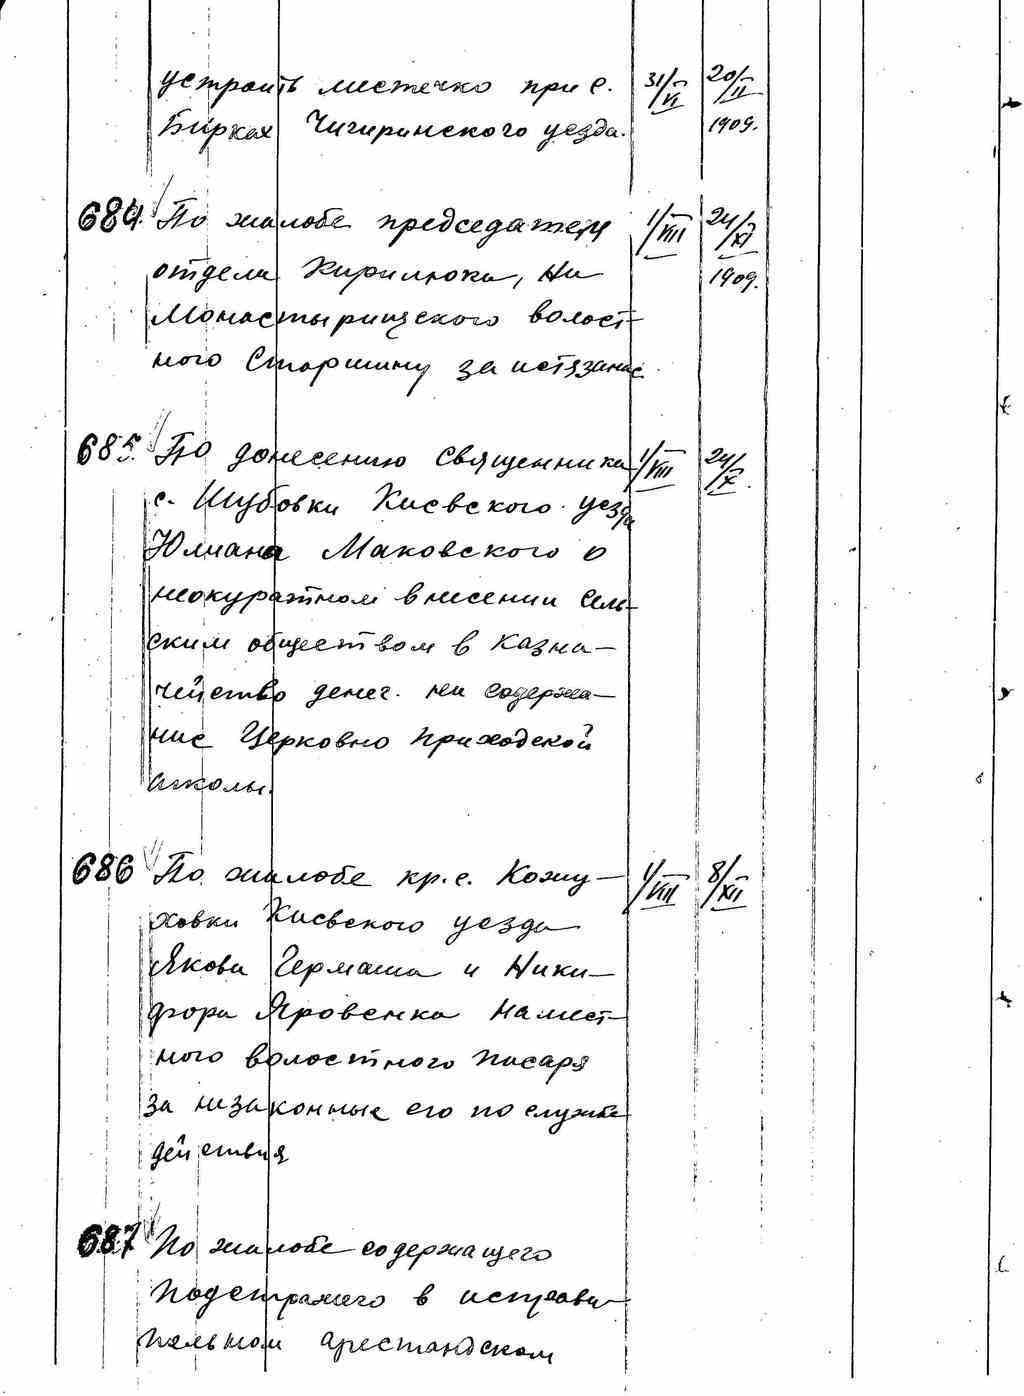 устроить местечко при с. 31/VI 20/II
Бирках Чигиринского уезда. 1909.
684. По жалобе председателя 1/VIII 24/XI
отдела Кирилюка, на 1909.
Монастырищского волост-
ного Старшину за истязание.
685. По донесению священника 1/VIII 24/X.
с. Шубовки Киевского уезда
Юлиана Маковского о
неокуратном внесении сель-
ским обществом в казна-
чейство денег на содержа-
ние Церковно приходской
школы.
686 По жалобе кр. с. Кожу- 1/VIII 8/XII
ховки Киевского уезда
Якова Германа и Ники-
фора Яровенка на мест-
ного волостного писаря
за незаконные его по службе
действия
687 По жалобе содержащего
подстражего в исправи-
тельном арестандском